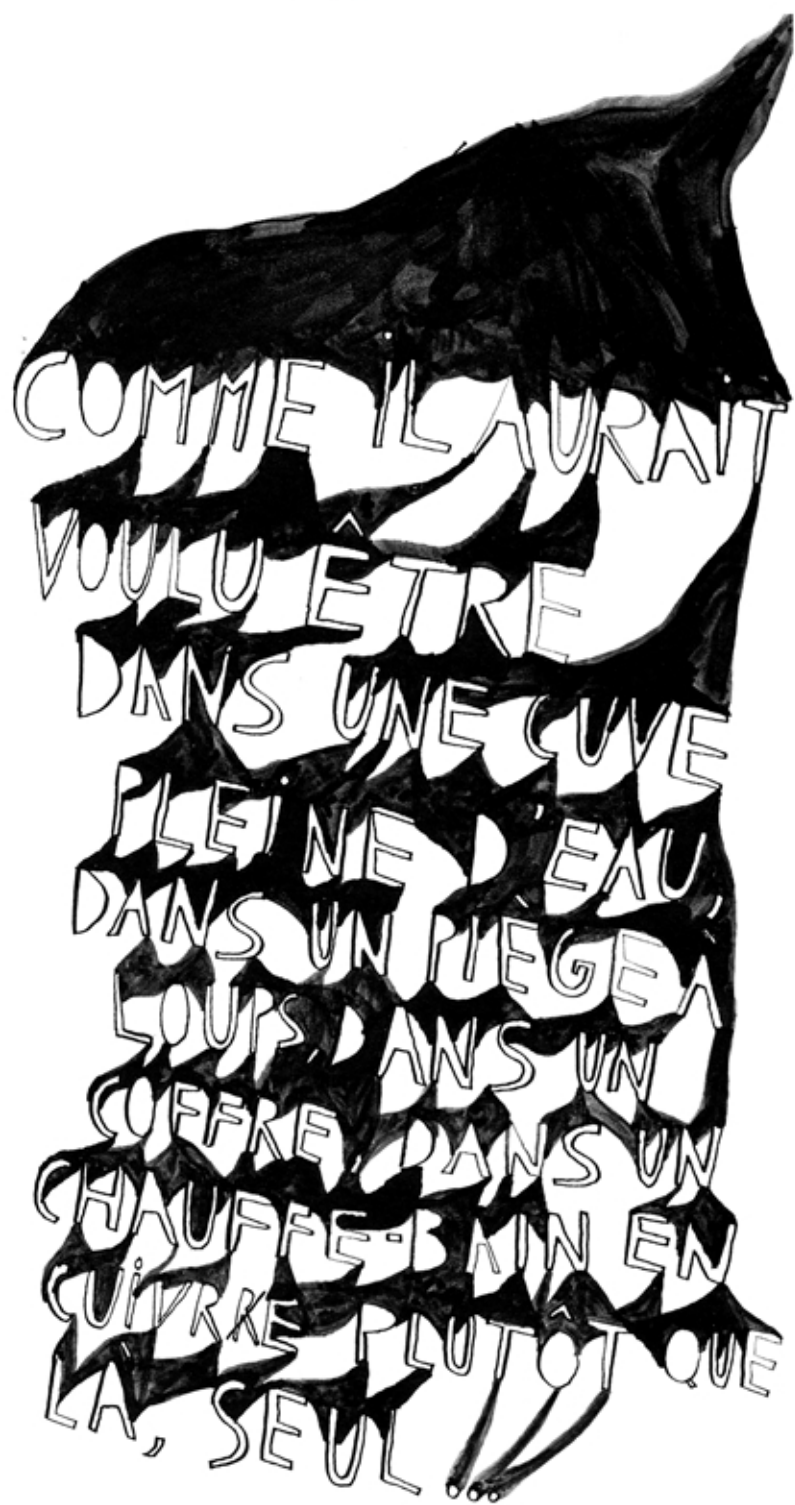 COMME iL AURAiT
VOULU ÊTRE
DANS UNE CUVE
PLEiNE D'EAU,
DANS UN PIÈGE À
LOUPS, DANS UN
COFFRE, DANS UN
CHAUFFE-BAIN EN
CUiVRRE PLUTÔT QUE
LÀ, SEUL...